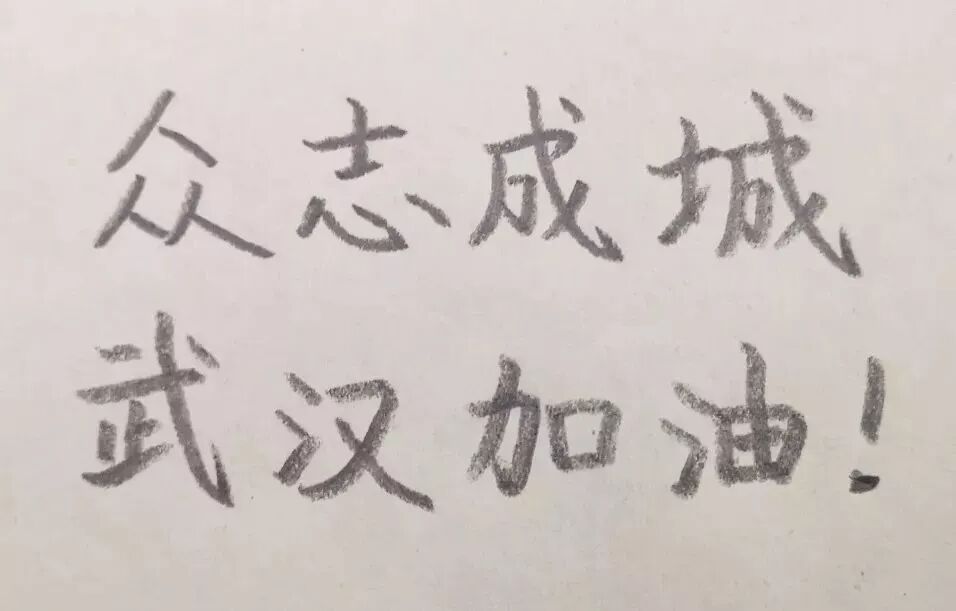 众志成城
武汉加油!